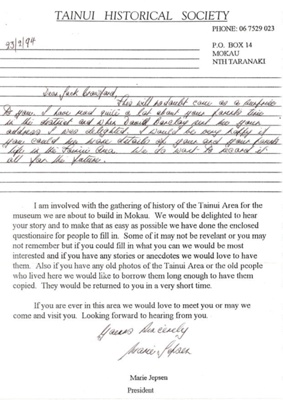 TAINUI HISTORICAL SOCIETY
PHONE: 06 7529 023
P.O. BOX 14
MOKAU
NTH TARANAKI
Dear Jack Crawford,
This will no doubt come as a
to you. I have read quite a lot about your time
in the and when Barclay me your
address I was delighted. I would be very happy if
you could me more details of your and your
life in the Tainui Area. We do want to record it
all for the future.
I am involved with the gathering of history of the Tainui Area for the
museum we are about to build in Mokau. We would be delighted to hear
your story and to make that as easy as possible we have done the enclosed
questionaire for people to fill in. Some of it may not be revelant or you may
not remember but if you could fill in what you can we would be most
interested and if you have any stories or anecdotes we would love to have
them. Also if you have any old photos of the Tainui Area or the old people
who lived here we would like to borrow them long enough to have them
copied. They would be returned to you in a very short time.
If you are ever in this area we would love to meet you or may we
come and visit you. Looking forward to hearing from you.
Yours Sincerely
Marie Jepsen
Marie Jepsen
President